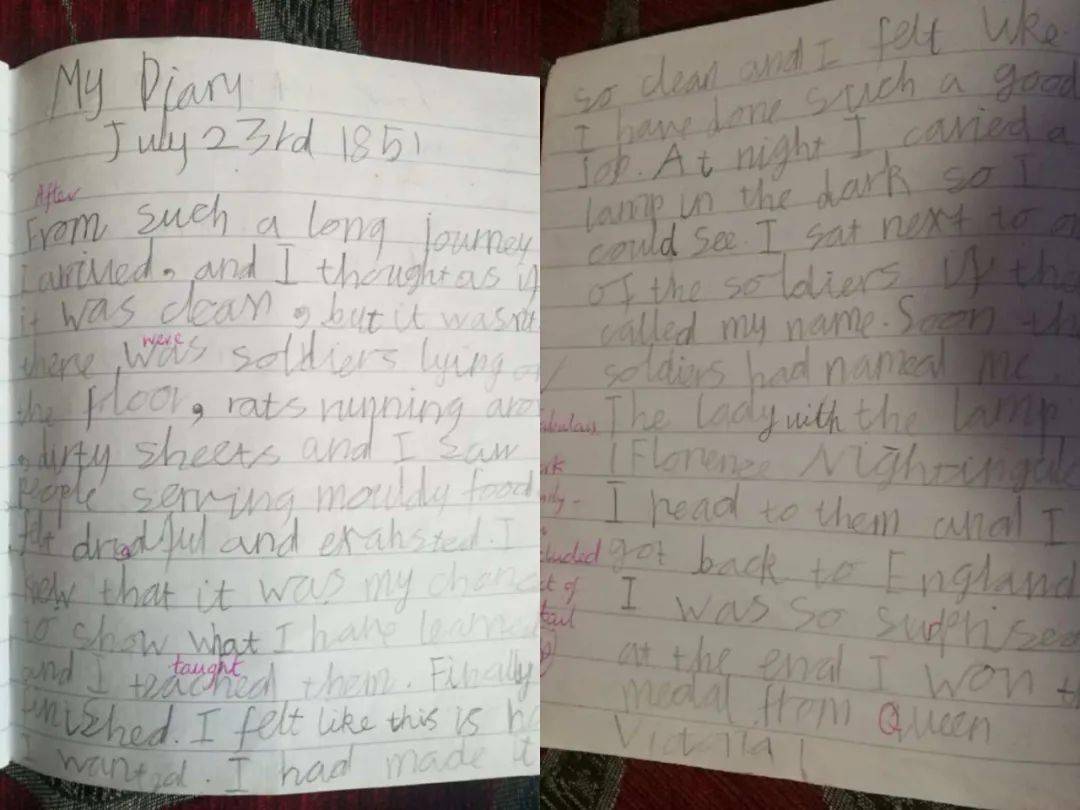 My Diary
July 23rd 1851
After
From such a long journey
I arrived, and I thought as if
it was clean, but it wasn't
were
there was soldiers lying on
the floor, rats running aro
, dirty sheets and I saw
people serving mouldy food
felt dreadful and exahsted. I
knew that it was my chanc
to show what I have learned
taught
and I teached them. Finally
finished. I felt like this is h
I wanted. I had made it
so clean and I felt like
I have done such a good
job. At night I carried a
lamp in the dark so I
could see. I sat next to on
of the soldiers if the
called my name. Soon th
soldiers had named me
The lady with the lamp
(Florence Nightingale
I read to them and I
cluded
got back to England
ct of
I was so suprised
tail
at the end I won th
medal from Queen
Victoria!